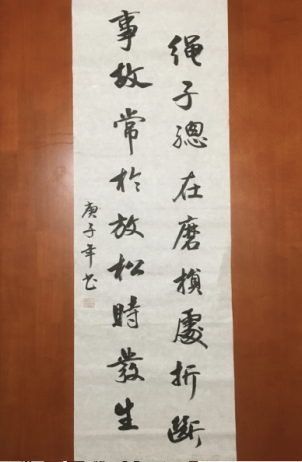 绳子總在磨損處折斷
事故常於放松時發生
庚子年书